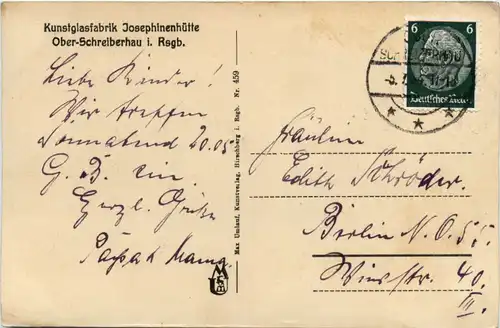 Kunstglasfabrik Josephinenhütte
Ober-Schreiberhau i. Rsgb.
Liebe Kinder!
Wir treffen
Sonnabend 20.05
G. B. ein
Herzl. Grüße
Mama
Max Umlauf, Kunstverlag, Hirschberg i. Rsgb. Nr. 459
6 6
Deutsches Reich
Fräulein
Edith Schröder.
Berlin N.O.55.
Winsstr. 40.
III.